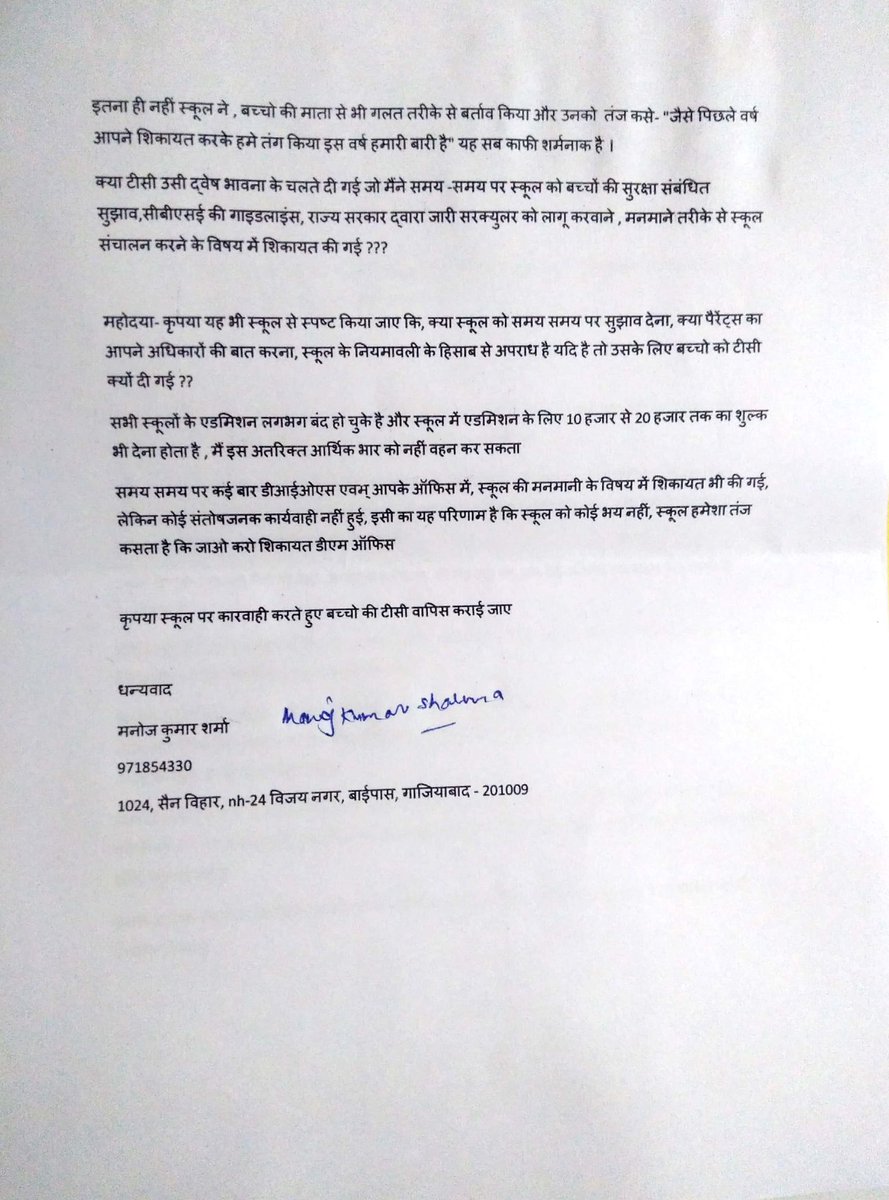 इतना ही नहीं स्कूल ने , बच्चो की माता से भी गलत तरीके से बर्ताव किया और उनको तंज कसे- "जैसे पिछले वर्ष
आपने शिकायत करके हमे तंग किया इस वर्ष हमारी बारी है" यह सब काफी शर्मनाक है ।
क्या टीसी उसी द्वेष भावना के चलते दी गई जो मैंने समय -समय पर स्कूल को बच्चों की सुरक्षा संबंधित
सुझाव,सीबीएसई की गाइडलाइंस, राज्य सरकार द्वारा जारी सरक्युलर को लागू करवाने , मनमाने तरीके से स्कूल
संचालन करने के विषय में शिकायत की गई ???
महोदया- कृपया यह भी स्कूल से स्पष्ट किया जाए कि, क्या स्कूल को समय समय पर सुझाव देना, क्या पैरेंट्स का
आपने अधिकारों की बात करना, स्कूल के नियमावली के हिसाब से अपराध है यदि है तो उसके लिए बच्चो को टीसी
क्यों दी गई ??
सभी स्कूलों के एडमिशन लगभग बंद हो चुके है और स्कूल में एडमिशन के लिए 10 हजार से 20 हजार तक का शुल्क
भी देना होता है , मैं इस अतरिक्त आर्थिक भार को नहीं वहन कर सकता
समय समय पर कई बार डीआईओएस एवम् आपके ऑफिस में, स्कूल की मनमानी के विषय में शिकायत भी की गई,
लेकिन कोई संतोषजनक कार्यवाही नहीं हुई, इसी का यह परिणाम है कि स्कूल को कोई भय नहीं, स्कूल हमेशा तंज
कसता है कि जाओ करो शिकायत डीएम ऑफिस
कृपया स्कूल पर कारवाही करते हुए बच्चो की टीसी वापिस कराई जाए
धन्यवाद
मनोज कुमार शर्मा
Manoj Kumar Sharma
971854330
1024, सैन विहार, nh-24 विजय नगर, बाईपास, गाजियाबाद - 201009